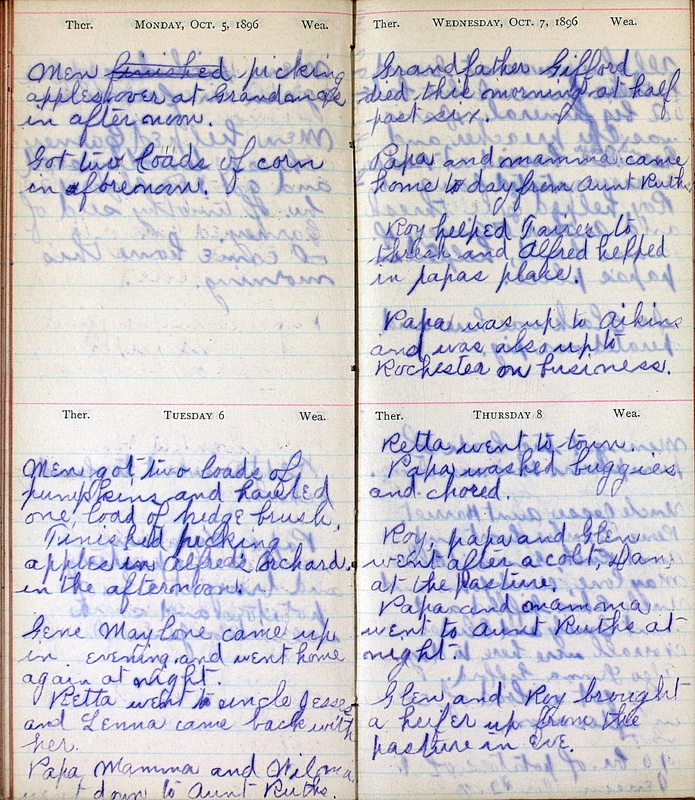 Ther. Monday, Oct. 5, 1896 Wea.
Men finished picking
apples over at Grandma Gs
in afternoon.
Got two loads of corn
in afternoon.
Ther. Tuesday 6 Wea.
Men got two loads of
pumpkins and hauled
one load of hedge brush.
Finished picking
apples in Alfred's orchard
in the afternoon.
Gene Maylone came up
in evening and went home
again at night.
Retta went to uncle Jesses
and Lenna came back with
her.
Papa Mamma and Wiloma
went down to Aunt Ruths.
Ther. Wednesday, Oct. 7, 1896 Wea.
Grandfather Gifford
died this morning at half
past six.
Papa and mamma came
home to day from Aunt Ruths.
Roy helped Tairce to
thresh and Alfred helped
in papas place.
Papa was up to Aikins
and was also up to
Rochester on business.
Ther. Thursday 8 Wea.
Retta went to town.
Papa washed buggies
and chored.
Roy, papa and Glen
went after a colt, Dan,
at the pasture.
Papa and mamma
went to Aunt Ruths at
night.
Glen and Roy brought
a heifer up from the
pasture in eve.